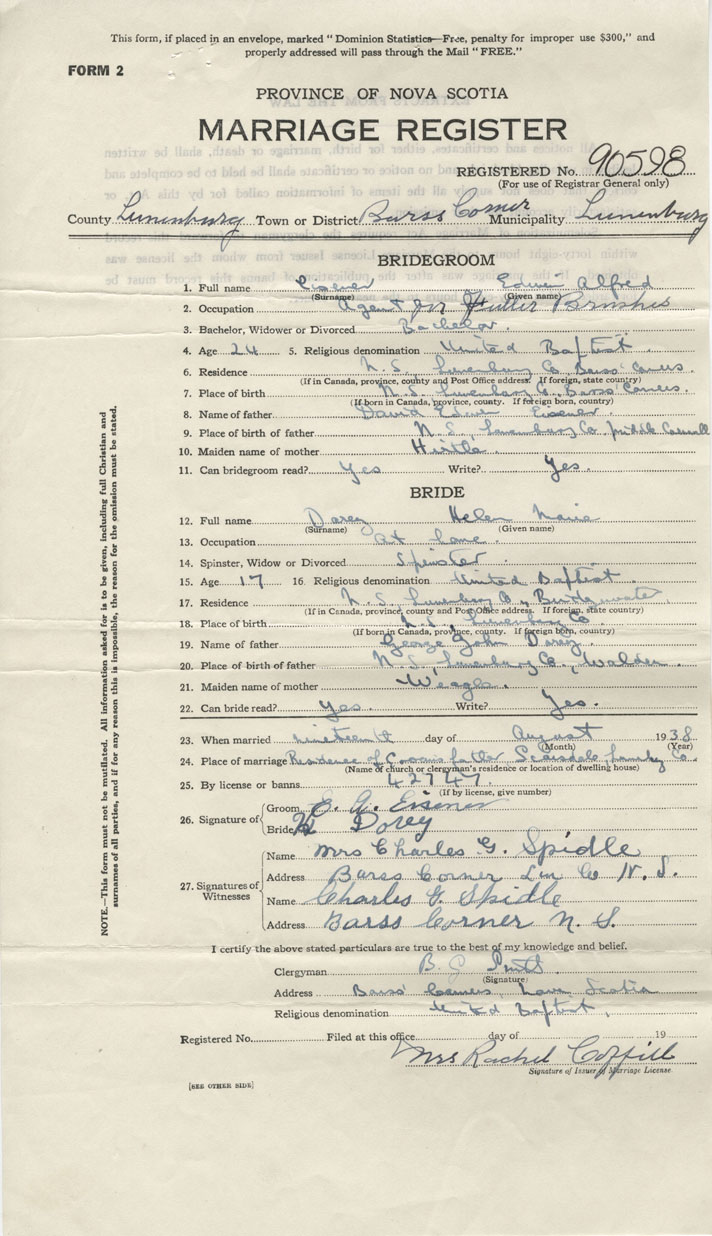 This form, if placed in an envelope, marked "Dominion Statistics—Free, penalty for improper use $300," and
properly addressed will pass through the Mail "FREE."
FORM 2
PROVINCE OF NOVA SCOTIA
MARRIAGE REGISTER
REGISTERED No. 90598
(For use of Registrar General only)
County Lunenburg Town or District Barss Corner Municipality Lunenburg
BRIDEGROOM
1. Full name Eisener Edwin Alfred
(Surname) (Given name)
2. Occupation Agent for Fuller Brushes
3. Bachelor, Widower or Divorced Bachelor.
4. Age 24 5. Religious denomination United Baptist
6. Residence N. S., Lunenburg Co., Barss' Corners
(If in Canada, province, county and Post Office address. If foreign, state country)
7. Place of birth N. S., Lunenburg Co., Barss' Corners.
(If born in Canada, province, county. If foreign born, country)
8. Name of father David Edwin Eisener.
9. Place of birth of father N. S., Lunenburg Co., Middle Cornwall
10. Maiden name of mother Hirtle
11. Can bridegroom read? Yes Write? Yes.
BRIDE
12. Full name Dorey Helen Marie
(Surname) (Given name)
13. Occupation at home.
14. Spinster, Widow or Divorced Spinster
15. Age 17 16. Religious denomination United Baptist
17. Residence N. S., Lunenburg Co., Bridgewater.
(If in Canada, province, county and Post Office address. If foreign, state country)
18. Place of birth N. S., Lunenburg Co
(If born in Canada, province, county. If foreign born, country)
19. Name of father George John Dorey.
20. Place of birth of father N. S., Lunenburg Co., Walden.
21. Maiden name of mother Weagle.
22. Can bride read? Yes. Write? Yes.
23. When married nineteenth day of August 1938
(Month) (Year)
24. Place of marriage Residence of Groom's father Co.
(Name of church or clergyman's residence or location of dwelling house)
25. By license or banns 42747
(If by license, give number)
26. Signature of
Groom E. A. Eisener
Bride H Dorey
27. Signatures of Witnesses
Name Mrs Charles G. Spidle
Address Barss Corner Lun Co N. S.
Name Charles G. Spidle
Address Barss Corner N. S.
I certify the above stated particulars are true to the best of my knowledge and belief.
Clergyman B. G.
(Signature)
Address Barss' Corners, Nova Scotia
Religious denomination United Baptist.
Registered No. Filed at this office day of 19
Mrs Rachel Coffill
Signature of Issuer of Marriage License.
[SEE OTHER SIDE]
NOTE.—This form must not be mutilated. All information asked for is to be given, including full Christian and
surnames of all parties, and if for any reason this is impossible, the reason for the omission must be stated.